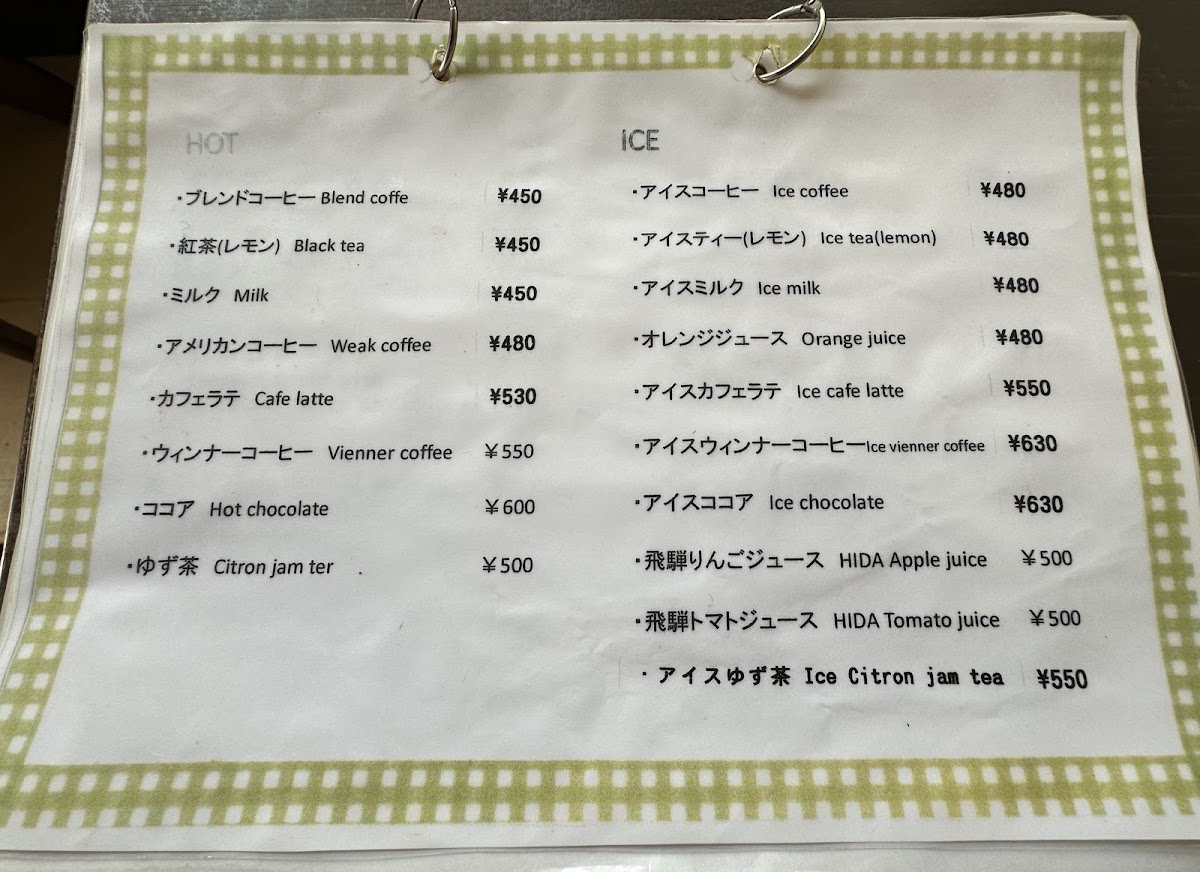 HOT
・ブレンドコーヒー Blend coffe ¥450
・紅茶(レモン) Black tea ¥450
・ミルク Milk ¥450
・アメリカンコーヒー Weak coffee ¥480
・カフェラテ Cafe latte ¥530
・ウィンナーコーヒー Vienner coffee ¥550
・ココア Hot chocolate ¥600
・ゆず茶 Citron jam ter . ¥500
ICE
・アイスコーヒー Ice coffee ¥480
・アイスティー(レモン) Ice tea(lemon) ¥480
・アイスミルク Ice milk ¥480
・オレンジジュース Orange juice ¥480
・アイスカフェラテ Ice cafe latte ¥550
・アイスウィンナーコーヒーIce vienner coffee ¥630
・アイスココア Ice chocolate ¥630
・飛騨りんごジュース HIDA Apple juice ¥500
・飛騨トマトジュース HIDA Tomato juice ¥500
・アイスゆず茶 Ice Citron jam tea ¥550